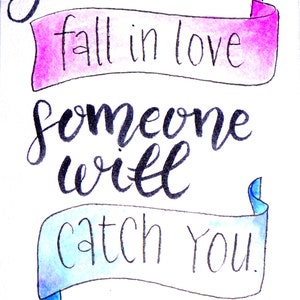 fall in love
someone
will
catch you.